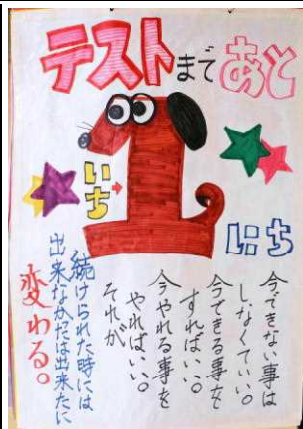 テストまであと
いち
にち
今できない事は
しなくていい。
今できる事を
すればいい。
今やれる事を
やればいい。
それが
続けられた時には
出来なかたは出来たに
変わる。